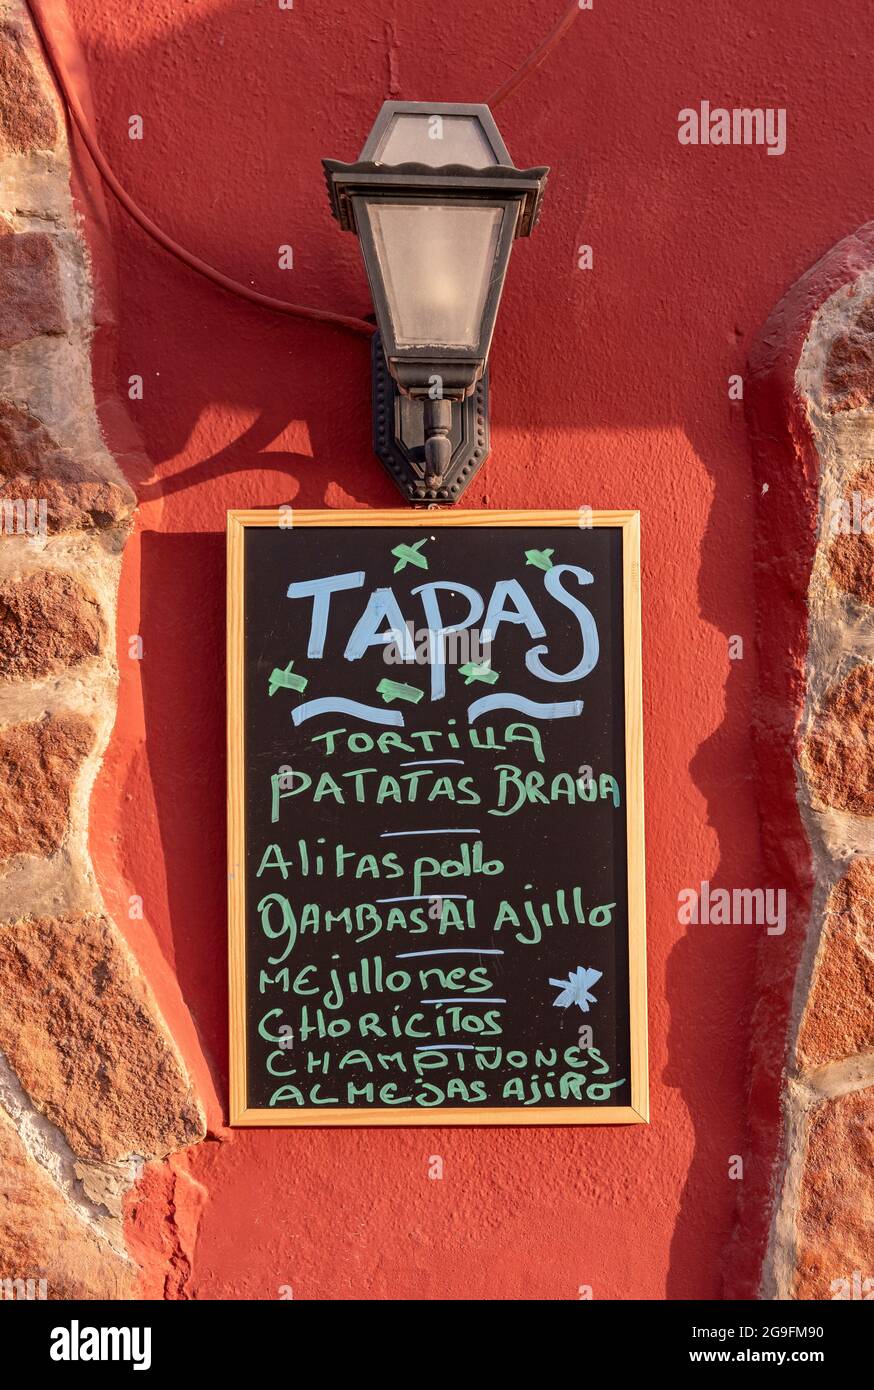 TAPAS
TORTILLA
PATATAS BRAVA
Alitas pollo
gAMBAS Al Ajillo
MEjillones
CHORICITOS
CHAMPIÑONES
ALMEJAS AJiRO
alamy
alamy
Image ID: 2G9FM90
www.alamy.com